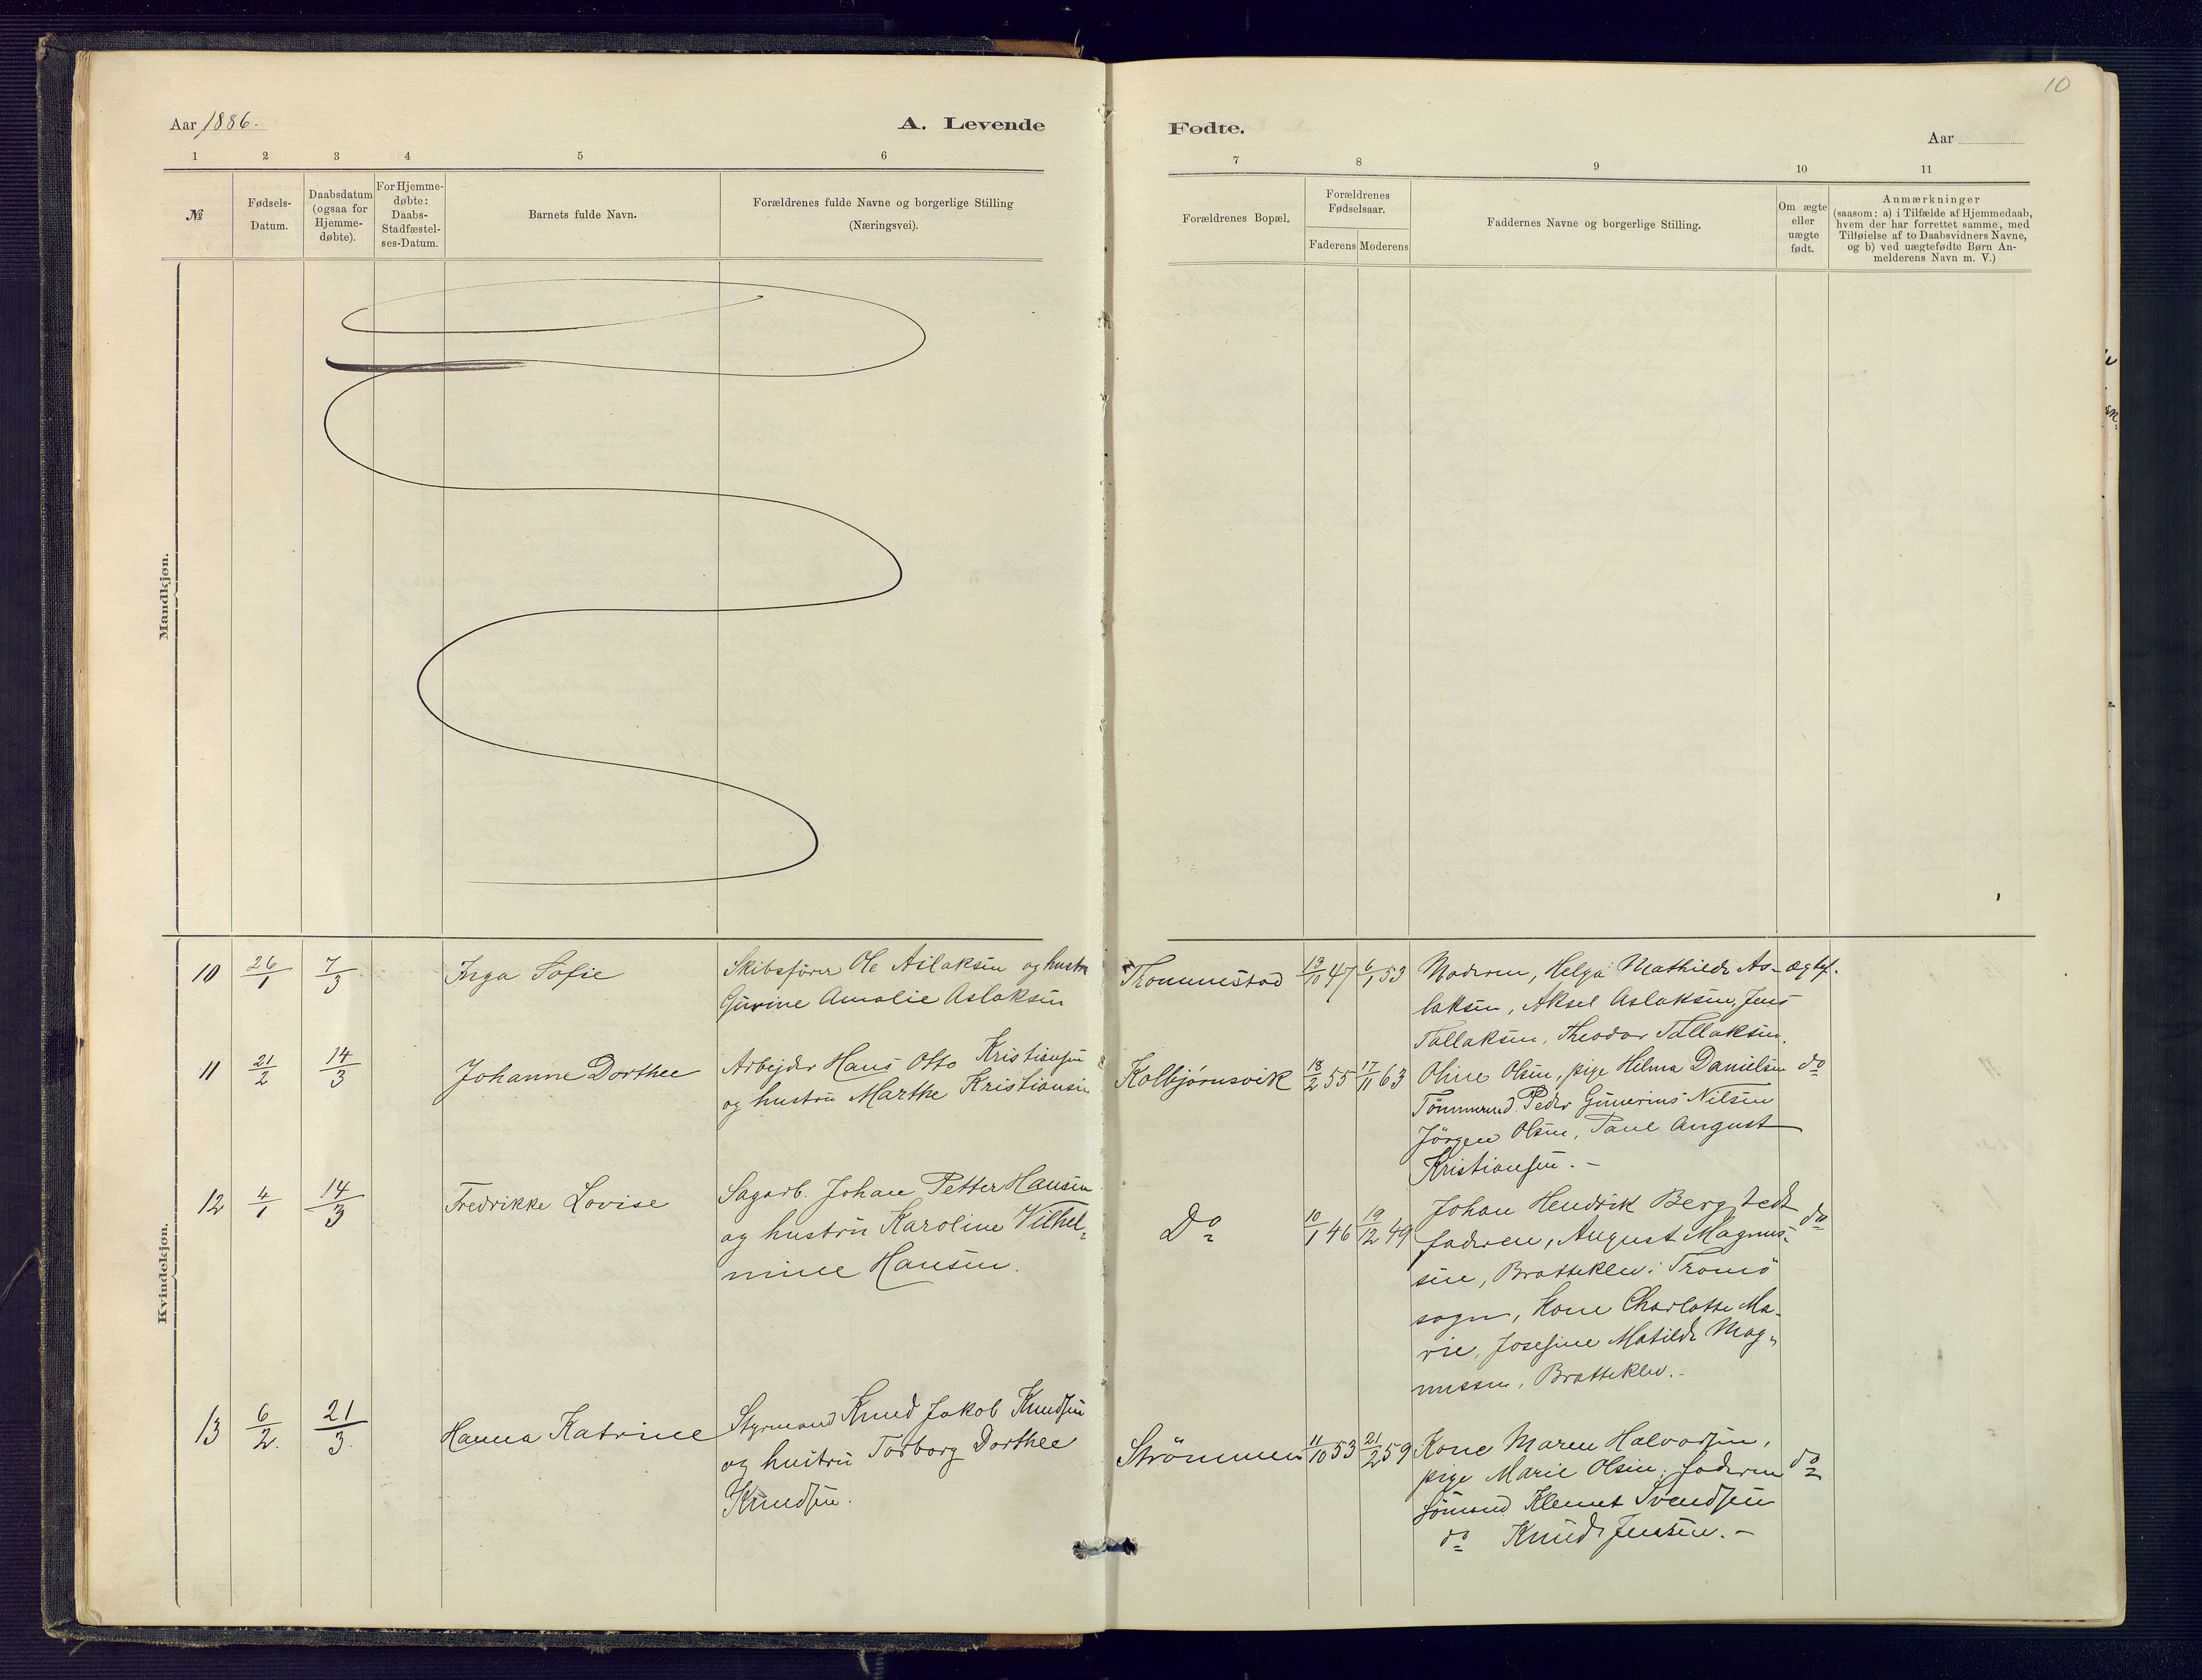 10
Aar 1886.
A. Levende
Fødte.
Aar
1 2 3 4 5 6 7 8 9 10 11
№
Fødsels-
Datum.
Daabsdatum
(ogsaa for
Hjemme-
døbte).
For Hjemme-
døbte:
Daabs-
Stadfæstel-
ses-Datum.
Barnets fulde Navn.
Forældrenes fulde Navne og borgerlige Stilling
(Næringsvei).
Forældrenes Bopæl.
Forældrenes
Fødselsaar.
Faderens Moderens
Faddernes Navne og borgerlige Stilling.
Om ægte
eller
uægte
født.
Anmærkninger
(saasom: a) i Tilfælde af Hjemmedaab,
hvem der har forrettet samme, med
Tilføielse af to Daabsvidners Navne,
og b) ved uægtefødte Børn An-
melderens Navn m. V.)
Mandkjøn.
Kvindekjøn.
10 26/1 7/3 Inga Sofie
Skibsfører Ole Aslaksen og hustr
Gurine Amalie Aslaksen
Thommestad 19/10 47 6/1 53
Moderen, Helga Mathilde As-
laksen, Aksel Aslaksen, Jens
Tallaksen, Theodor Tallaksen.
ægtef.
11 21/2 14/3 Johanne Dorthee
Arbejder Hans Otto Kristiansen
og hustru Marthe Kristiansen
Kolbjørnsvik 18/2 55 17/11 63
Oline Olsen, pige Hilma Danielsen
Tømmermd. Peder Gunerius Nilsen
Jörgen Olsen, Paul August
Kristiansen. -
do
12 4/1 14/3 Fredrikke Lovise
Sagarb. Johan Petter Hansen
og hustru Karoline Vilhel-
mine Hansen.
Do 10/1 46 19/12 49
Johan Hendrik Bergstedt
faderen, August Magnus-
sen, Bratteklev i Tromö
sogn, Kone Charlotte Ma-
rie, Josefine Matilde Mag-
nussen, Bratteklev. -
do
13 6/2. 21/3. Hanna Katrine
Styrmand Knud Jakob Knudsen
og hustru Torborg Dorthee
Knudsen.
Strömmen 11/10 53 21/2 59
Kone Maren Halvorsen,
pige Marie Olsen, faderen
sömand Klemet Svendsen
do Knud Jensen. -
do